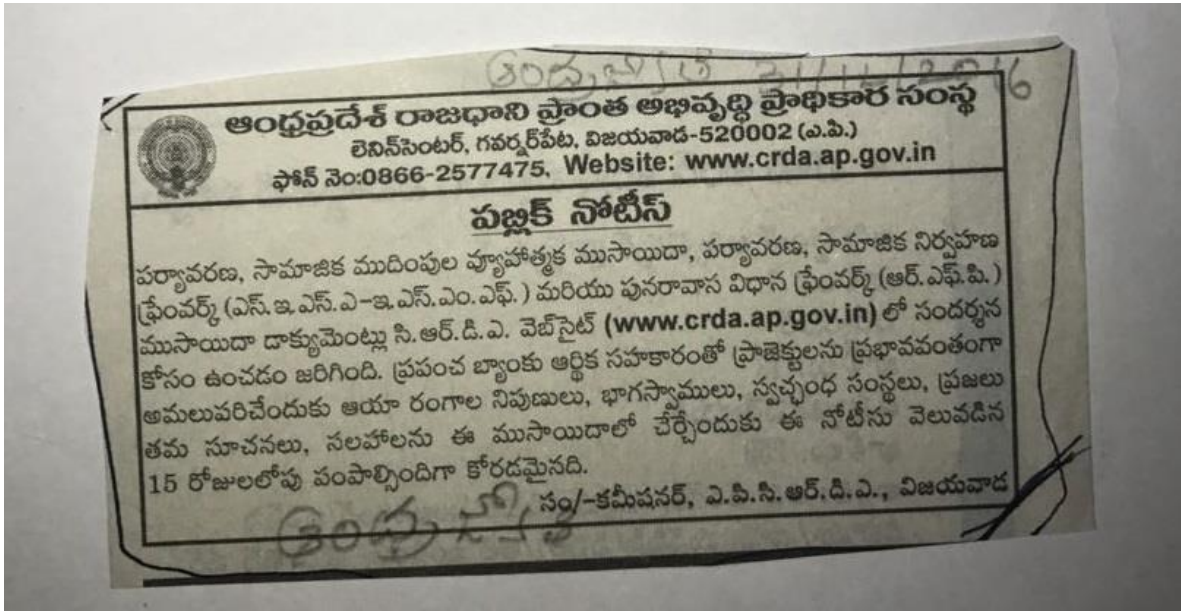 ఆంధ్రజ్యోతి 31/12/2016
ఆంధ్రప్రదేశ్ రాజధాని ప్రాంత అభివృద్ధి ప్రాధికార సంస్థ
లెనిన్‌సెంటర్, గవర్నర్‌పేట, విజయవాడ-520002 (ఎ.పి.)
ఫోన్ నెం:0866-2577475, Website: www.crda.ap.gov.in
పబ్లిక్ నోటీస్
పర్యావరణ, సామాజిక ముదింపుల వ్యూహాత్మక ముసాయిదా, పర్యావరణ, సామాజిక నిర్వహణ
ఫ్రేంవర్క్ (ఎస్.ఇ.ఎస్.ఎ-ఇ.ఎస్.ఎం.ఎఫ్.) మరియు పునరావాస విధాన ఫ్రేంవర్క్ (ఆర్.ఎఫ్.పి.)
ముసాయిదా డాక్యుమెంట్లు సి.ఆర్.డి.ఎ. వెబ్‌సైట్ (www.crda.ap.gov.in) లో సందర్శన
కోసం ఉంచడం జరిగింది. ప్రపంచ బ్యాంకు ఆర్థిక సహకారంతో ప్రాజెక్టులను ప్రభావవంతంగా
అమలుపరిచేందుకు ఆయా రంగాల నిపుణులు, భాగస్వాములు, స్వచ్ఛంధ సంస్థలు, ప్రజలు
తమ సూచనలు, సలహాలను ఈ ముసాయిదాలో చేర్చేందుకు ఈ నోటీసు వెలువడిన
15 రోజులలోపు పంపాల్సిందిగా కోరడమైనది.
సం/-కమీషనర్, ఎ.పి.సి.ఆర్.డి.ఎ., విజయవాడ
ఆంధ్రజ్యోతి